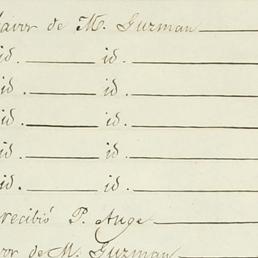 favor de M. Guzman
id. id.
id. id.
id. id.
id. id.
id. id.
recibió P. Auge
vor de M. Guzman